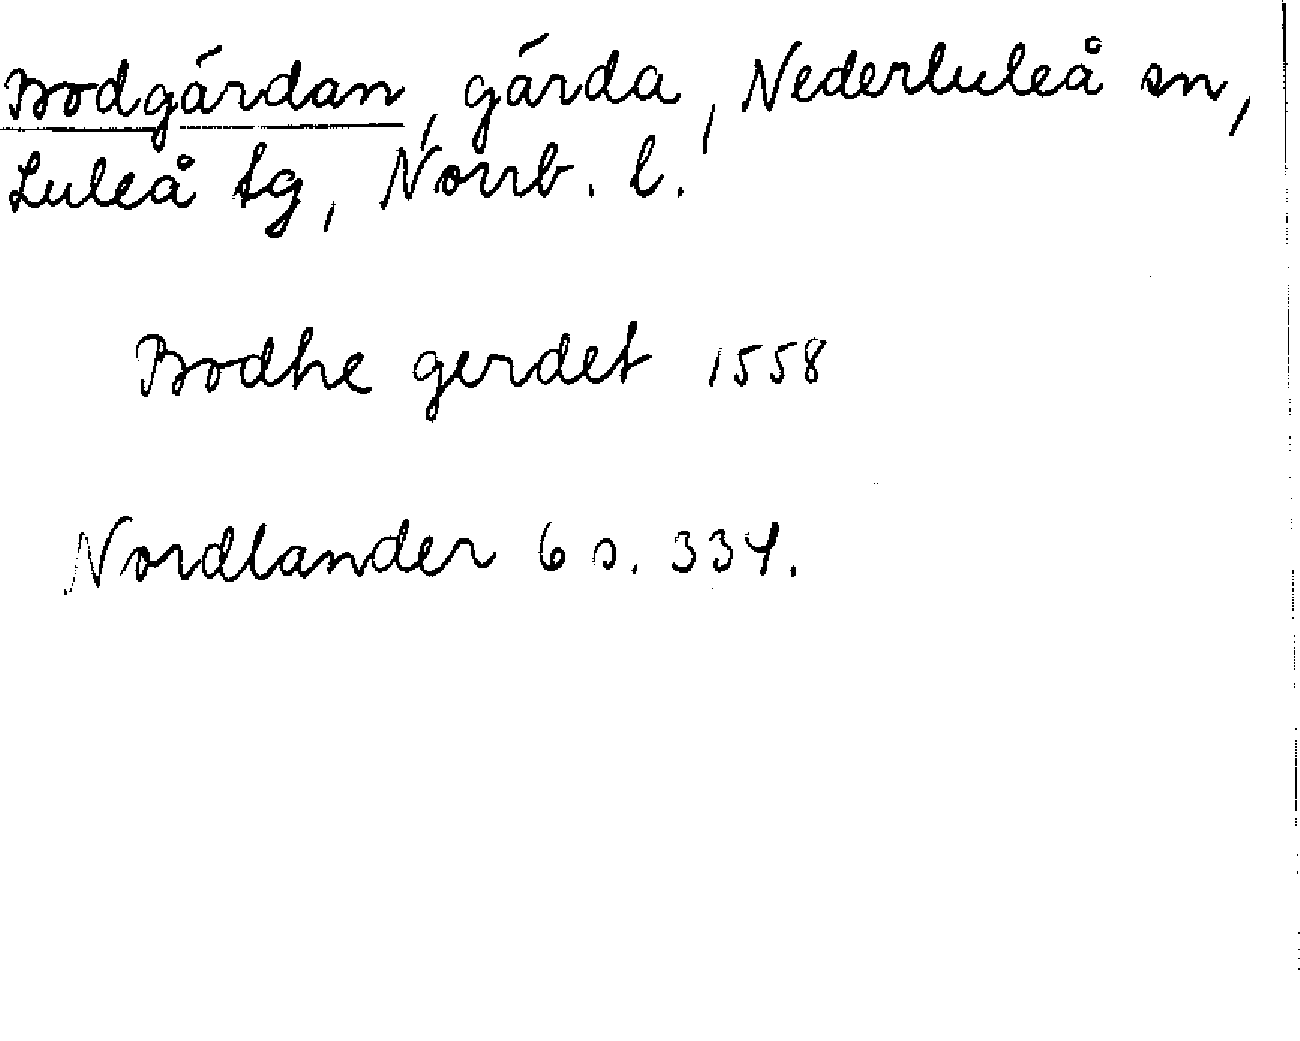 Bodgärdan, gärda, Nederluleå sn,
Luleå tg, Norrb. l.
Bodhe gerdet 1558
Nordlander 6 s. 334.